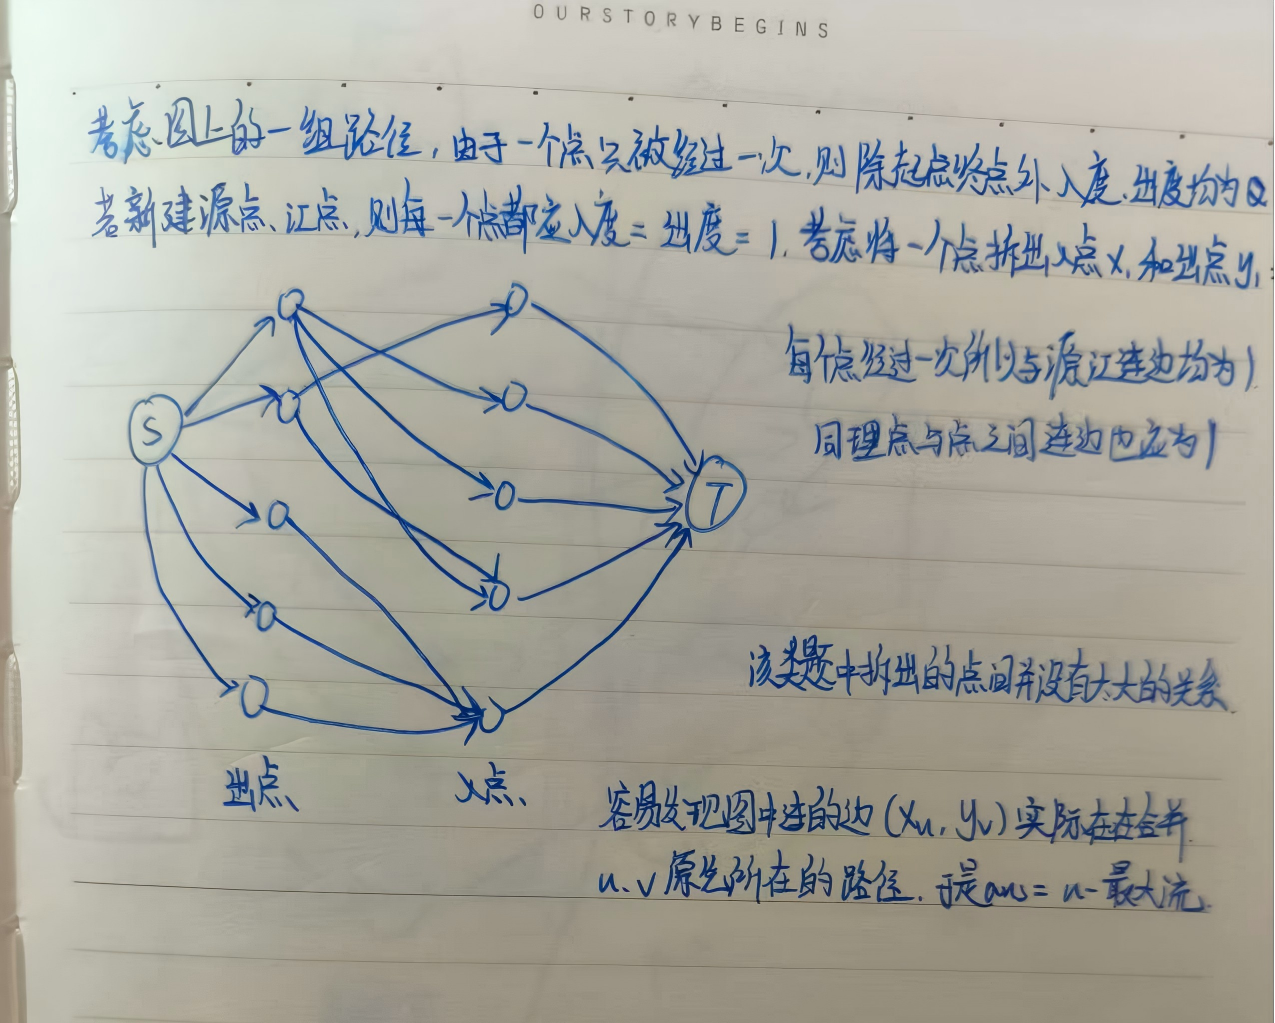 OURSTORYBEGINS
考虑图上的一组路径，由于一个点只被经过一次，则除起点终点外入度、出度均为
若新建源点、汇点，则每一个点都应入度=出度=1. 考虑将一个点拆出入点x, 和出点y,
每个点经过一次所以与源汇连边均为1
S
同理点与点之间连边也应为1
T
该类题中拆出的点间并没有太大的关系.
出点
入点
容易发现图中连的边(xu, yv)实际在在合并
u、v原先所在的路径. 于是ans = n-最大流.